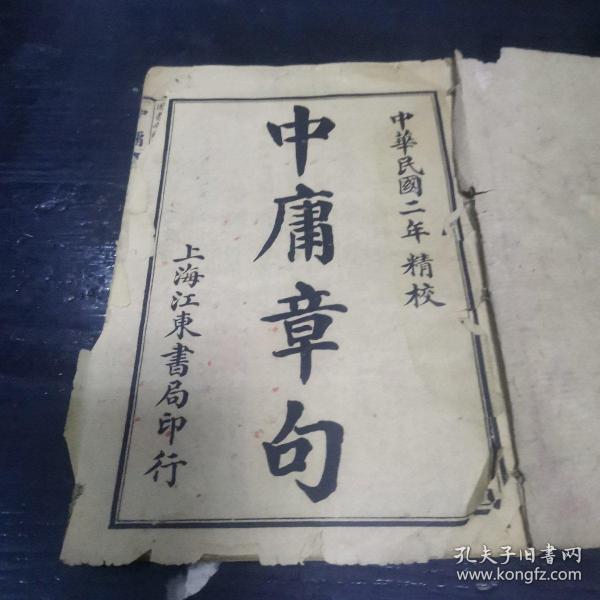 中華民國二年精校
中庸章句
上海江東書局印行
中庸
孔夫子旧书网
www.kongfz.com